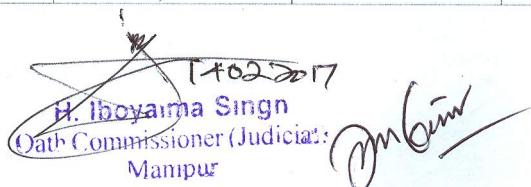 14022017
H. Iboyaima Singh
Oath Commissioner (Judicial)
Manipur